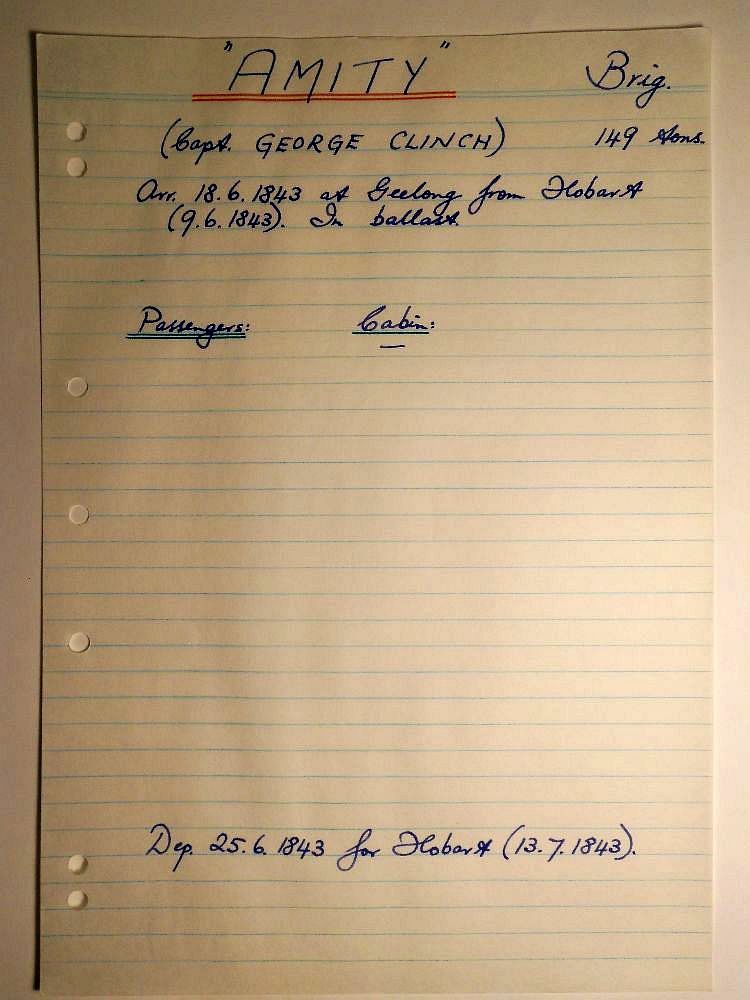 "AMITY" Brig.
(Capt. GEORGE CLINCH) 149 tons.
Arr. 18.6.1843 at Geelong from Hobart
(9.6.1843). In ballast.
Passengers: Cabin:
—
Dep. 25.6.1843 for Hobart (13.7.1843).